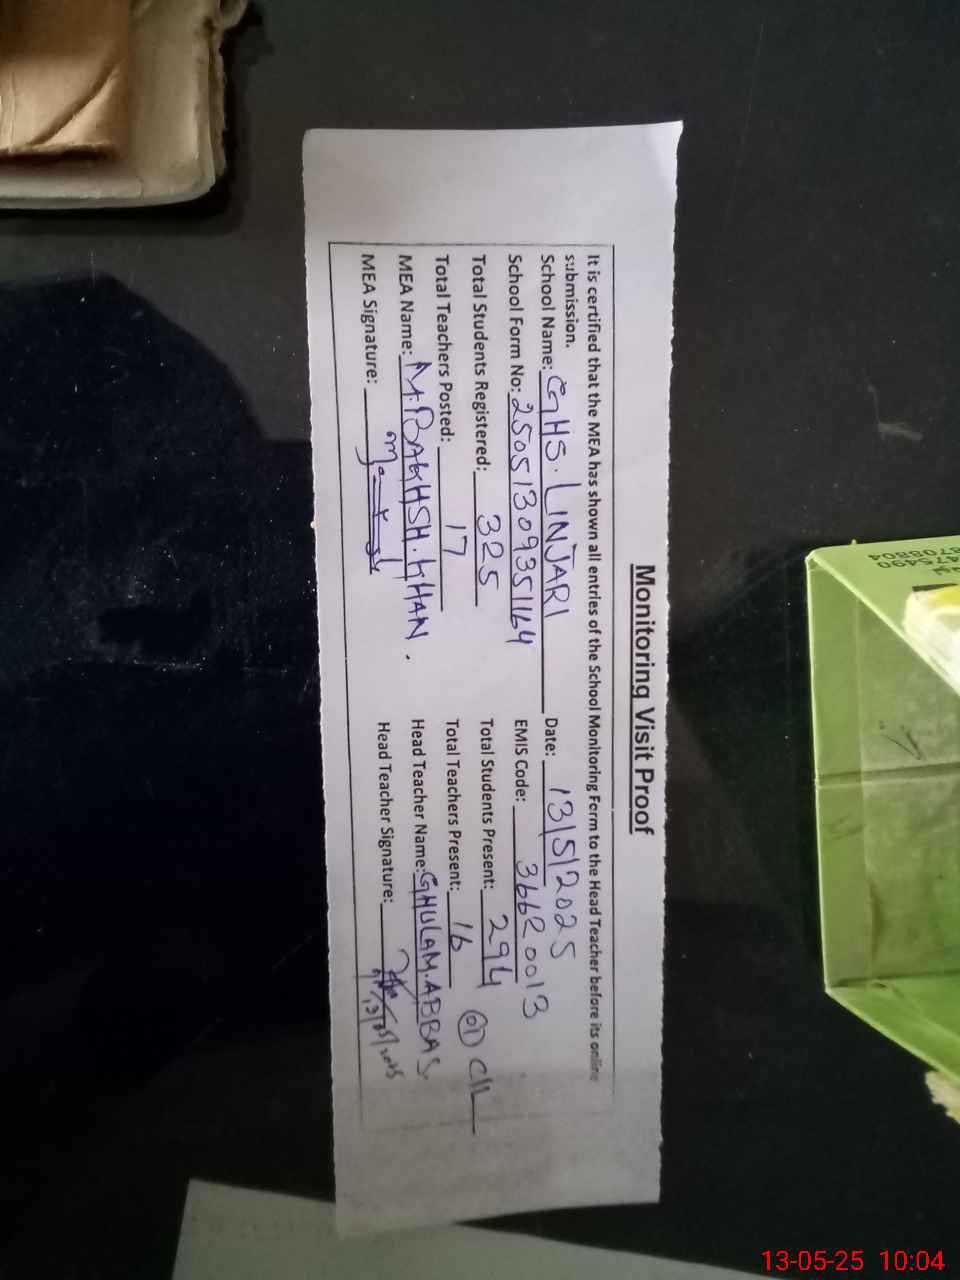 Monitoring Visit Proof
It is certified that the MEA has shown all entries of the School Monitoring Form to the Head Teacher before its online
submission.
School Name: GHS. LINJARI Date: 13/5/2025
School Form No: 25051309351164 EMIS Code: 36620013
Total Students Registered: 325 Total Students Present: 294
Total Teachers Posted: 17 Total Teachers Present: 16 01 C/L
MEA Name: M.BAKHSH.KHAN. Head Teacher Name: GHULAM.ABBAS.
MEA Signature: Head Teacher Signature:
13/05/2025
475490
8708804
13-05-25 10:04